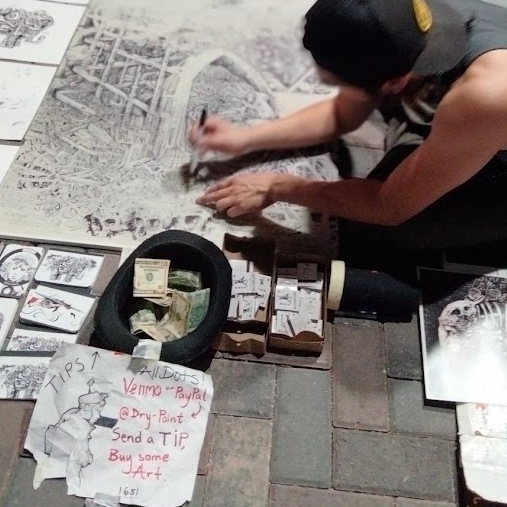 TIPS
All Dots!
Venmo or PayPal
@Dry-Point
Send a TIP,
Buy some
Art.
1651